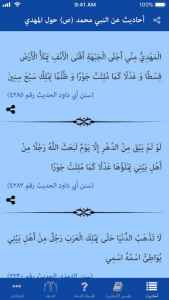 9:41 AM
100%
أحاديث عن النبي محمد (ص) حول المهدي
المَهْدِيُّ مِنِّي أَجْلَى الجَبْهَةِ أَقْنَى الأَنْفِ يَمْلَأُ الأَرْضَ
قِسْطًا وَ عَدْلًا كَمَا مُلِئَتْ جَوْرًا وَ ظُلْمًا يَمْلِكُ سَبْعَ سِنِينَ
(سنن أبي داود الحديث رقم ٤٢٨٥)
لَوْ لَمْ يَبْقَ مِنَ الدَّهْرِ إِلَّا يَوْمٌ لَبَعَثَ اللَّهُ رَجُلًا مِنْ
أَهْلِ بَيْتِي يَمْلَؤُهَا عَدْلًا كَمَا مُلِئَتْ جَوْرًا
(سنن أبي داود الحديث رقم ٤٢٨٣)
لَا تَذْهَبُ الدُّنْيَا حَتَّى يَمْلِكَ الْعَرَبَ رَجُلٌ مِنْ أَهْلِ بَيْتِي
يُوَاطِئُ اسْمُهُ اسْمِي